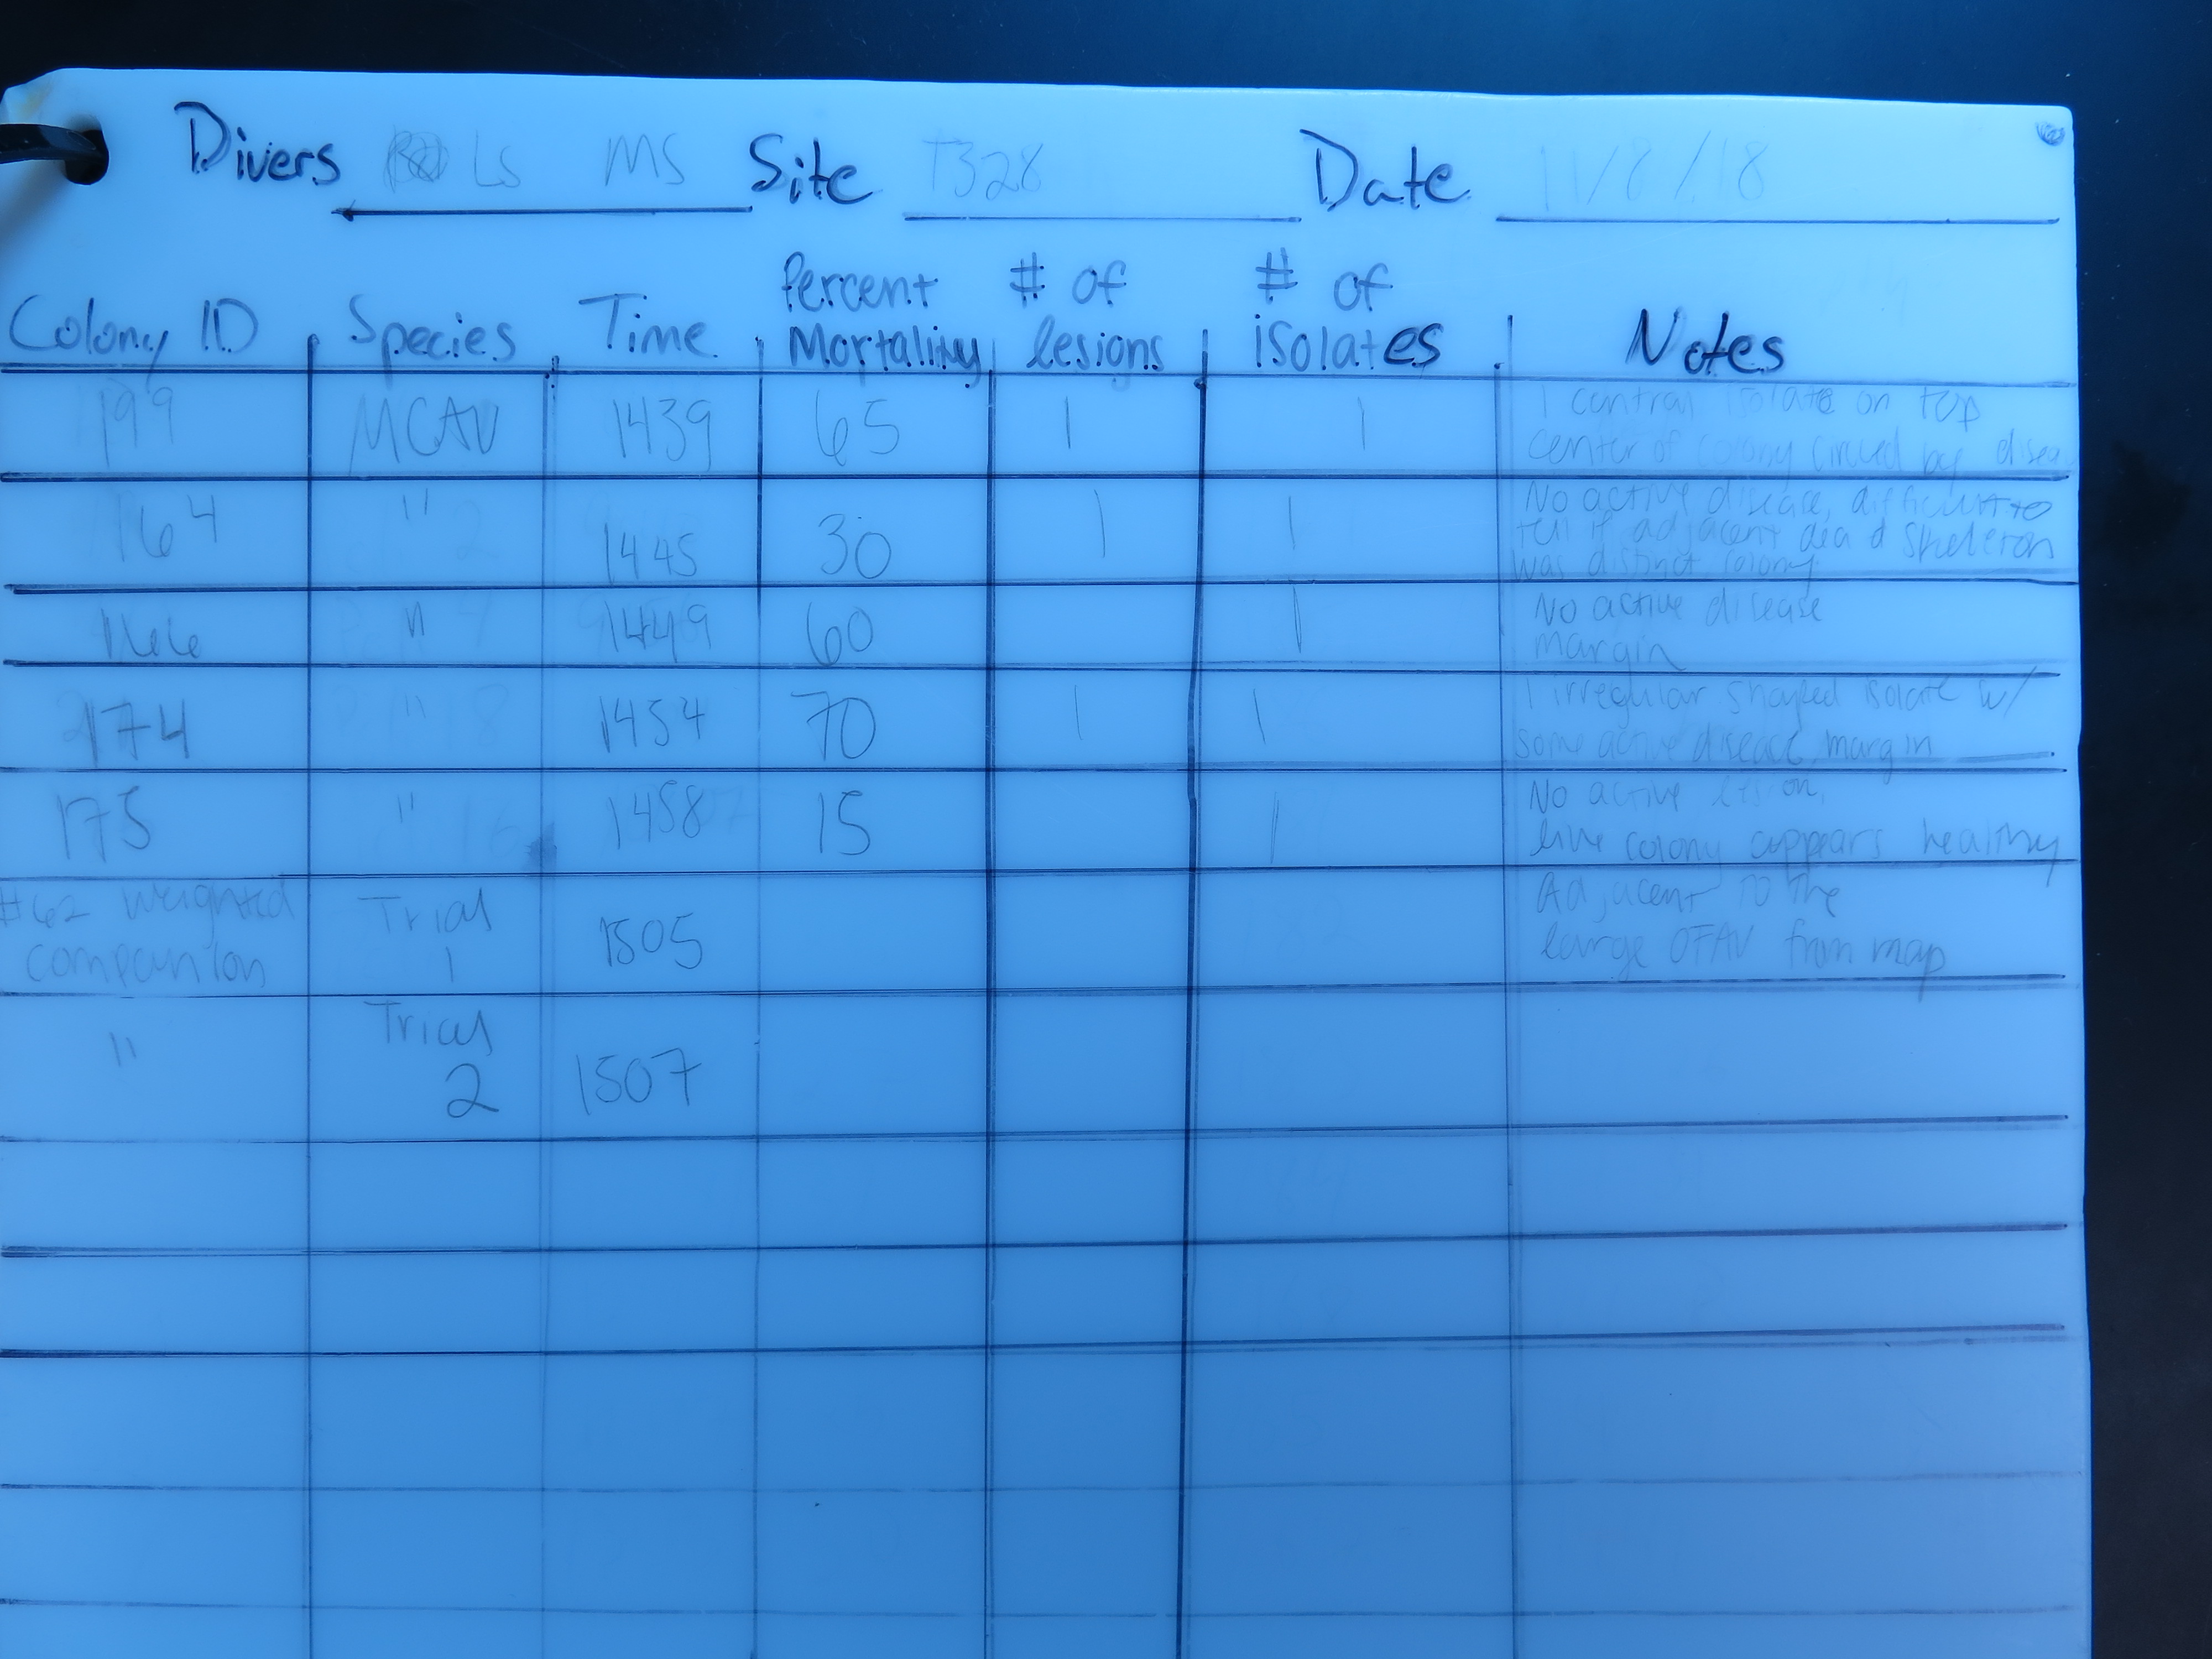 Divers LS MS Site T328 Date 11/8/18
Colony ID Species Time Percent Mortality # of lesions # of isolates Notes
199 MCAV 1439 65 1 1 1 central isolate on top
center of colony circled by disea
164 " 1445 30 1 1 No active disease, difficult to
tell if adjacent dead skeleton
was distinct colony
166 " 1449 60 1 No active disease
margin
174 " 1454 70 1 1 1 irregular shaped isolate w/
some active disease margin
175 " 1458 15 1 No active lesion,
live colony appears healthy
#62 weighted Trial 1505 Adjacent to the
companion 1 large OFAV from map
" Trial
2 1507